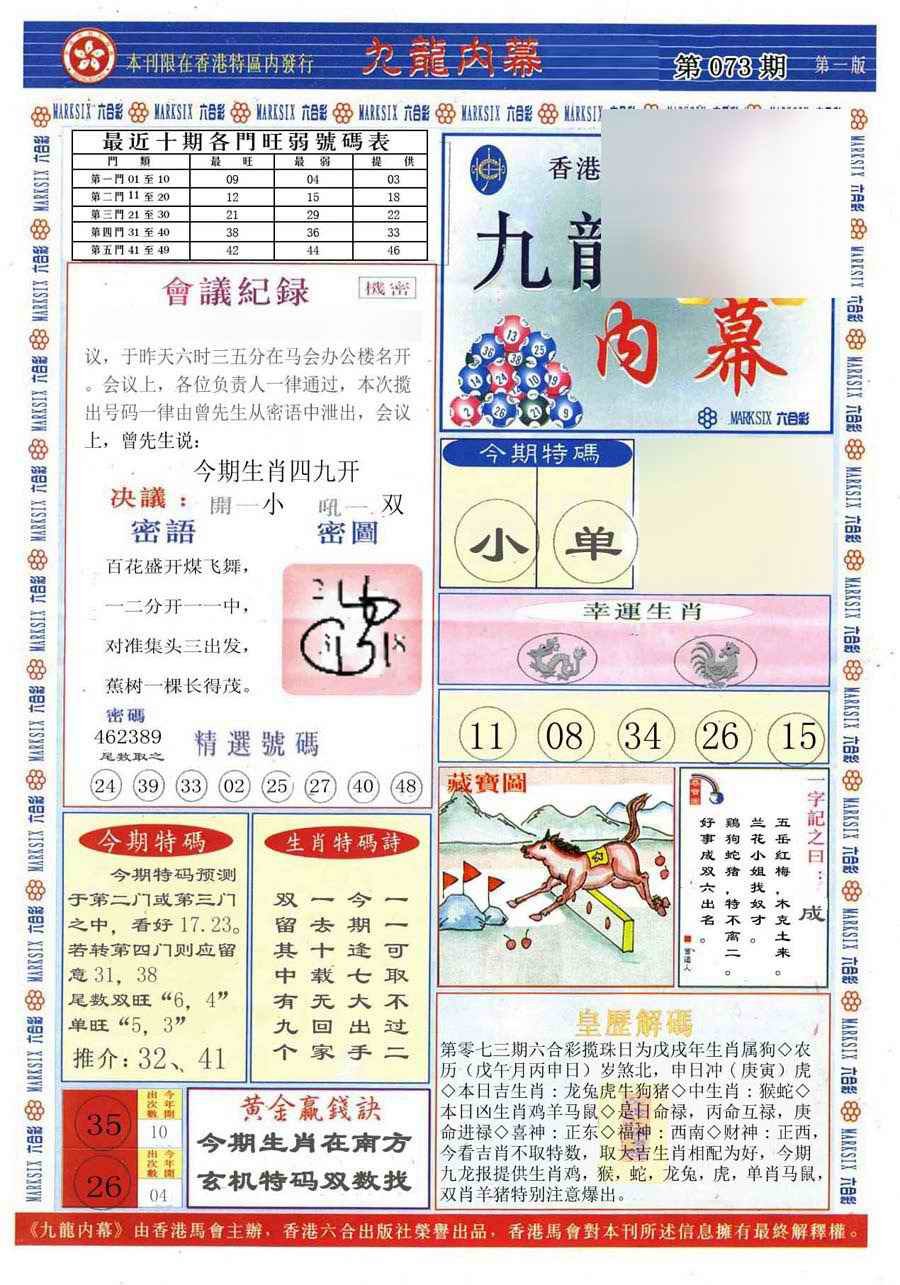 本刊限在香港特區内發行
九龍内幕
第 073 期
第一版
MARKSIX 六合彩
最近十期各門旺弱號碼表
門 類 最 旺 最 弱 提 供
第一門 01 至 10 09 04 03
第二門 11 至 20 12 15 18
第三門 21 至 30 21 29 22
第四門 31 至 40 38 36 33
第五門 41 至 49 42 44 46
會議紀録
機密
议，于昨天六时三五分在马会办公楼名开
。会议上，各位负责人一律通过，本次揽
出号码一律由曾先生从密语中泄出，会议
上，曾先生说：
今期生肖四九开
决議： 開一小 吼一 双
密語 密圖
百花盛开煤飞舞，
一二分开一一中，
对准集头三出发，
蕉树一棵长得茂。
密碼
462389
尾数取之
精選號碼
24 39 33 02 25 27 40 48
香港
九龍
内幕
13
36 25
14 24 10 19
2 26 23 9
MARKSIX 六合彩
今期特碼
小 单
幸運生肖
11 08 34 26 15
藏寶圖
一字記之曰：成
五岳红梅，木克土来。
兰花小姐找奴才。
鸡狗蛇猪，特不离二。
好事成双六出名。
今期特碼
今期特码预测
于第二门或第三门
之中，看好 17.23。
若转第四门则应留
意 31，38
尾数双旺“6，4”
单旺“5，3”
推介：32、41
生肖特碼詩
一可取不过二
今期逢七大出手
一去十载无回家
双留其中有九个
皇歷解碼
第零七三期六合彩揽珠日为戊戌年生肖属狗◇农
历（戊午月丙申日）岁煞北，申日冲（庚寅）虎
◇本日吉生肖：龙兔虎牛狗猪◇中生肖：猴蛇◇
本日凶生肖鸡羊马鼠◇是日命禄，丙命互禄，庚
命进禄◇喜神：正东◇福神：西南◇财神：正西，
今看吉肖不取特数，取大吉生肖相配为好，今期
九龙报提供生肖鸡，猴，蛇，龙兔，虎，单肖马鼠，
双肖羊猪特别注意爆出。
35 今年開出次數 10
26 今年開出次數 04
黃金贏錢訣
今期生肖在南方
玄机特码双数找
《九龍内幕》由香港馬會主辦，香港六合出版社榮譽出品，香港馬會對本刊所述信息擁有最終解釋權。